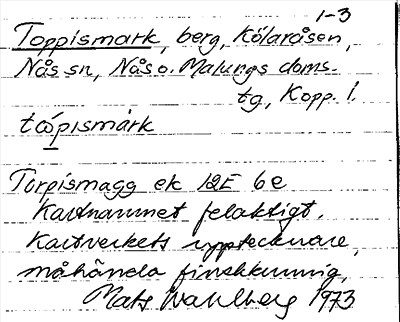 1-3
Toppismark, berg, Kölaråsen,
Nås sn, Nås o. Malungs doms-
tg, Kopp. l.
tɷ́pismàrk
Torpismagg ek 12E 6e
Kartnamnet felaktigt.
Kartverkets upptecknare,
måhända finskkunnig,
Mats Wahlberg 1973